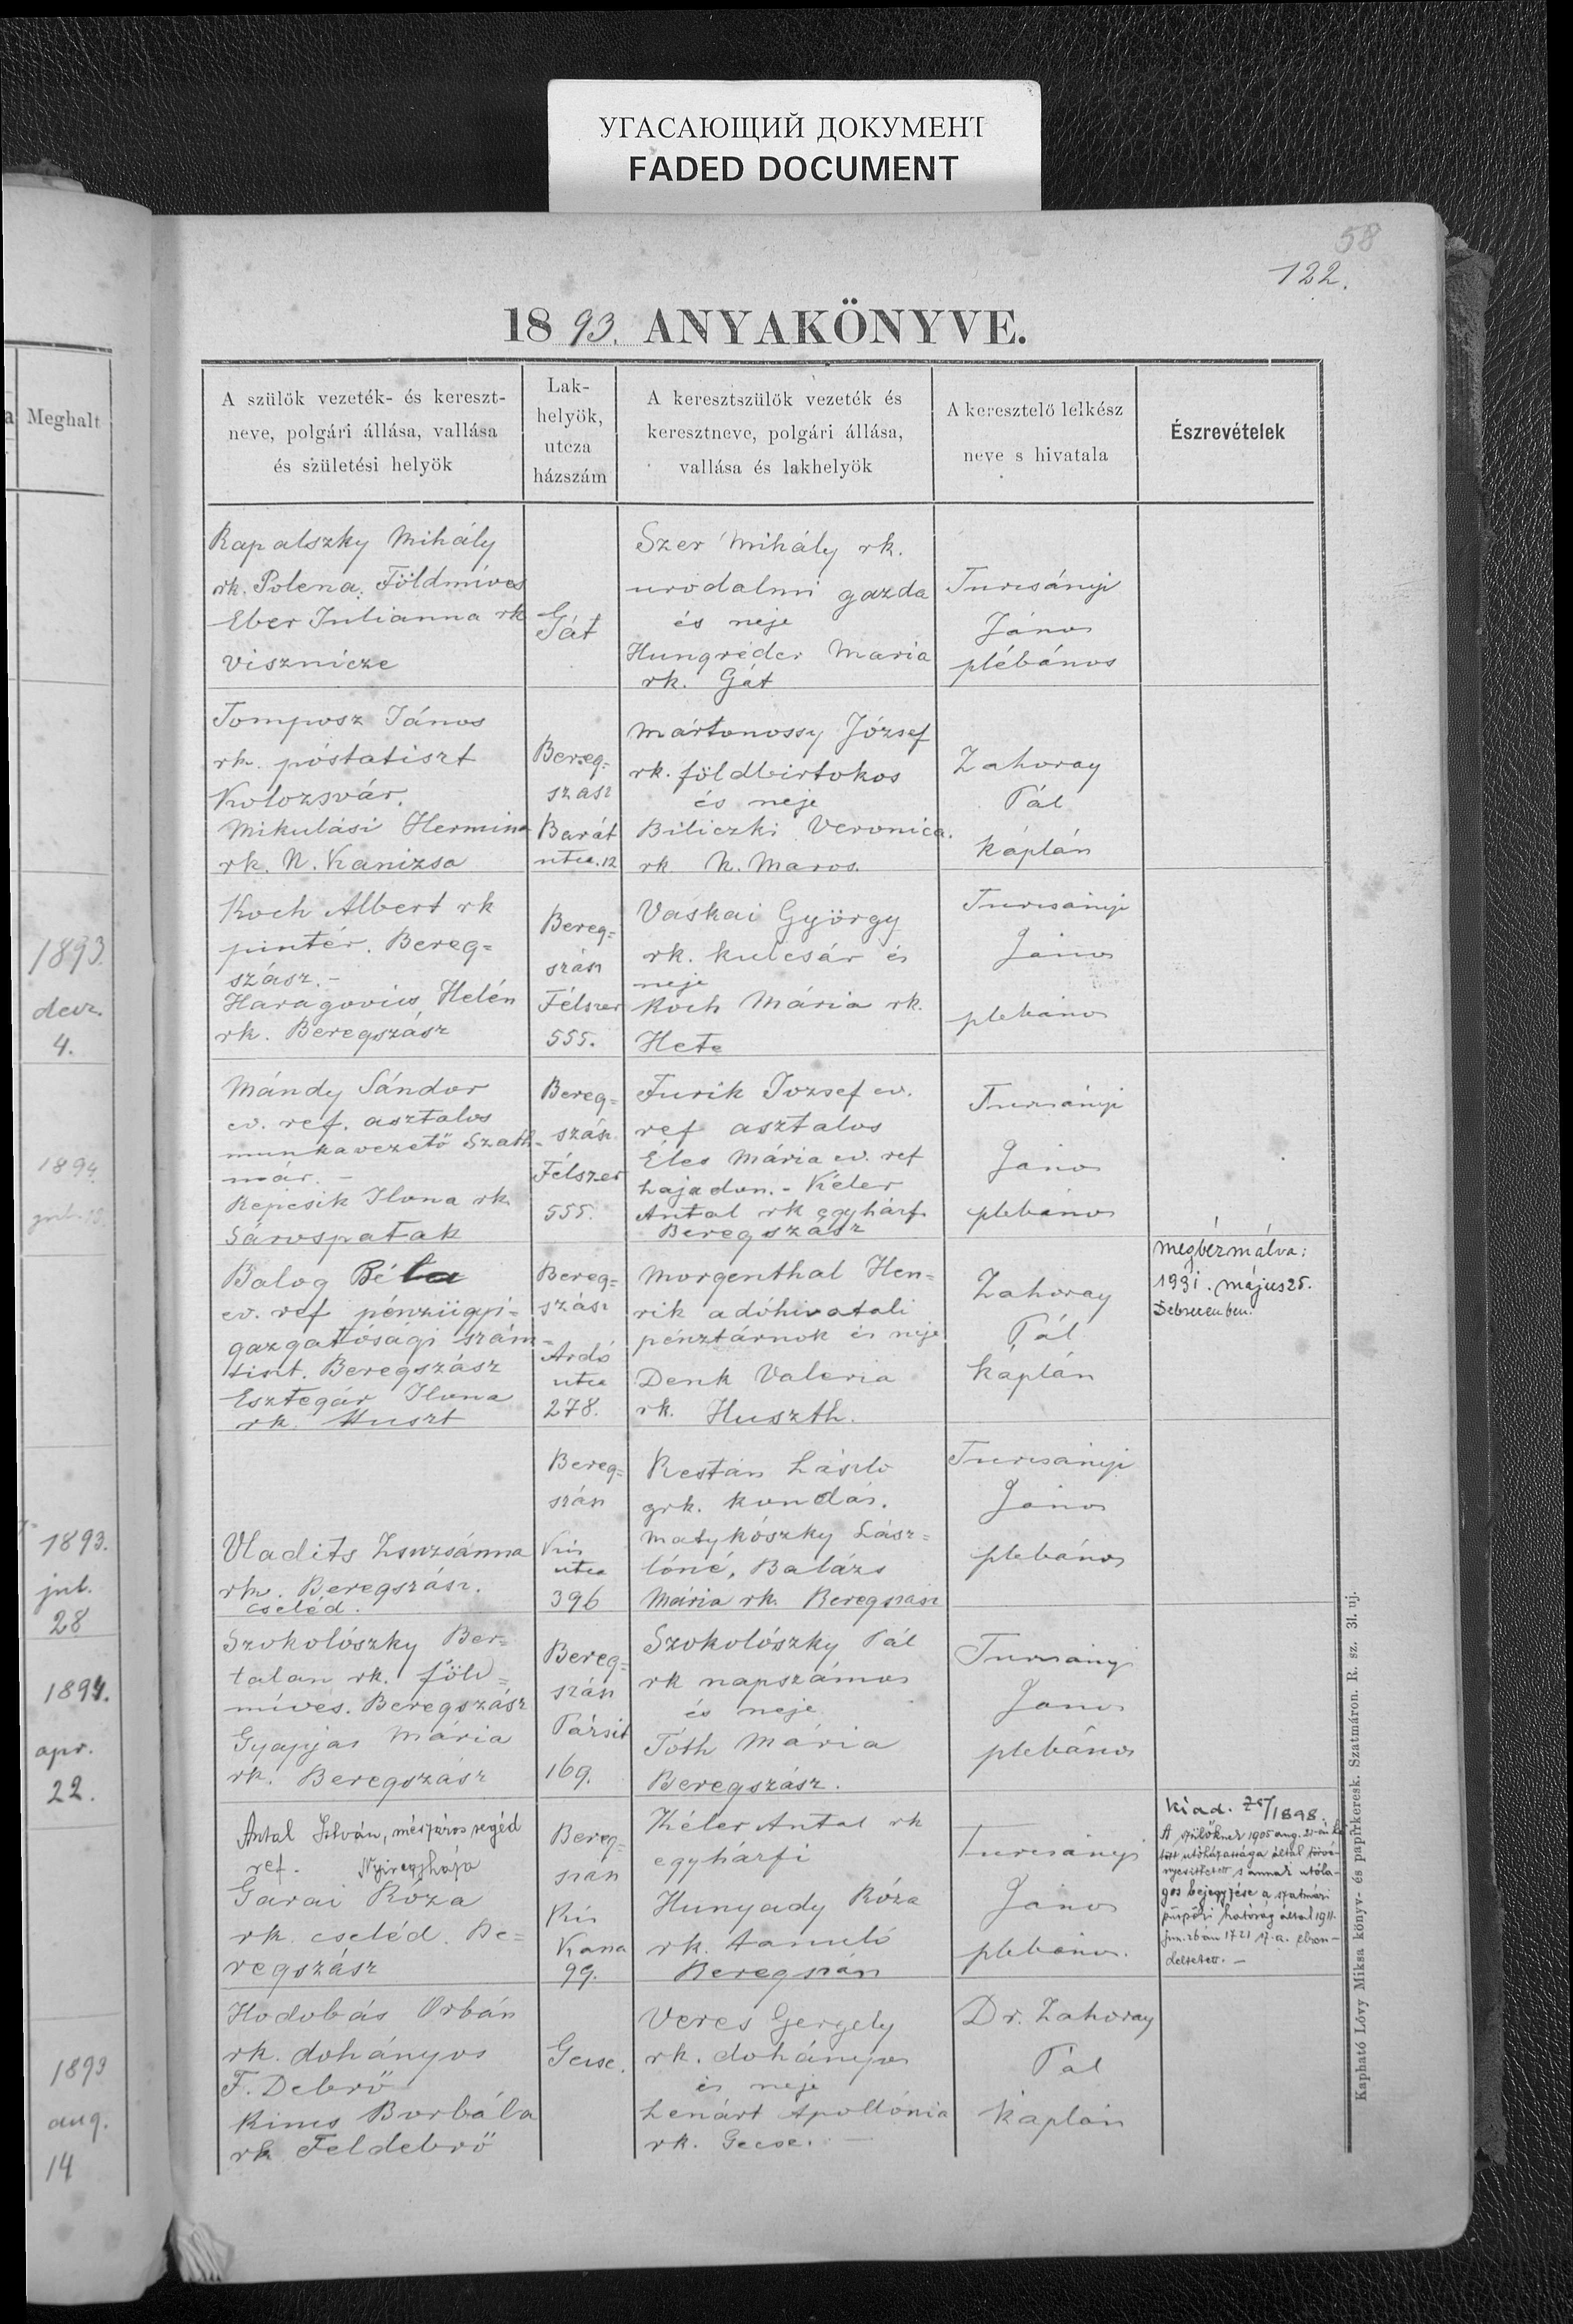 УГАСАЮЩИЙ ДОКУМЕНТ
FADED DOCUMENT
58
122.
1893. ANYAKÖNYVE.
a Meghalt
A szülök vezeték- és kereszt-
neve, polgári állása, vallása
és születési helyök
Lak-
helyök,
utcza
házszám
A keresztszülök vezeték és
keresztneve, polgári állása,
vallása és lakhelyök
A keresztelő lelkész
neve s hivatala
Észrevételek
Kapalszky Mihály
rk. Polena. Földmíves
Eber Julianna rk
Visznicze
Gát
Szer Mihály rk.
urodalmi gazda
és neje
Hungréder Maria
rk. Gát
Turcsányi
János
plébános
Tomposz János
rk. póstatiszt
Kolozsvár.
Mikulási Hermina
rk. N. Kanizsa
Bereg=
szász
Barát
utca. 12
Mártonossy József
rk. földbirtokos
és neje
Biliczki Veronica.
rk. N. Maros.
Zahoray
Pál
káplán
1893.
decz.
4.
Koch Albert rk
pintér. Bereg=
szász. -
Haragovics Helén
rk. Beregszász
Bereg=
szász
Félszer
555.
Vaskai György
rk. kulcsár és
neje
Koch Mária rk.
Hete
Turcsányi
János
plebános
1894.
Mándy Sándor
ev. ref. asztalos
munkavezető Szath-
már. -
Repcsik Ilona rk.
Sárospatak
Bereg=
szász.
Félszer
555.
Furik Jozsef ev.
ref asztalos
Éles Mária ev. ref
hajadon. - Kéler
Antal rk egyhárf.
Beregszász
Turcsányi
János
plebános
Balog Béla
ev. ref pénzügyi-
gazgatósági szám-
tiszt. Beregszász
Esztegár Ilona
rk. Huszt
Bereg=
szász
Ardó
utca
278.
Morgenthal Hen=
rik adóhivatali
pénztárnok és neje
Denk Valeria
rk. Huszth.
Zahoray
Pál
káplán
megbérmálva:
1931. május 25.
Debrecenben.
1893.
jul.
28
Vladits Zsuzsánna
rk. Beregszász.
cseléd.
Bereg=
szász
Kis
utca
396
Restán László
grk. kondás.
Matykószky Lász=
lóné, Balázs
Mária rk. Beregszász
Turcsányi
János
plebános
1894.
apr.
22.
Szokolószky Ber=
talan rk. föld=
míves. Beregszász
Gyapjas Mária
rk. Beregszász
Bereg=
szász
169.
Szokolószky Pál
rk napszámos
és neje
Tóth Mária
Beregszász.
Turcsányi
János
plebános
Antal István, mészáros segéd
ref. Nyiregyháza
Garai Roza
rk. cseléd. Be=
regszász
Bereg=
szász
Kis
Kana
99.
Kéler Antal rk
egyhárfi
Hunyady Róza
rk. tanuló
Beregszász
Turcsányi
János
plebános.
Kiad. 75/1898.
A szülőknek 1905 aug. 21-én kö-
tött utóházassága által törvé-
nyesíttetett s annak utóla-
gos bejegyzése a szatmári
püspöki hatóság által 1911.
jun. 26 án 1721 sz. a. elren-
deltetett. -
1893
aug.
14
Hodobás Orbán
rk. dohányos
F. Debrő
Kincs Borbála
rk Feldebrő
Gecse.
Veres Gergely
rk. dohányos
és neje
Lenárt Apollónia
rk. Gecse. -
Dr. Zahoray
Pál
káplán
Kapható Lóvy Miksa könyv- és papírkeresk. Szatmáron. R. sz. 3l. uj.